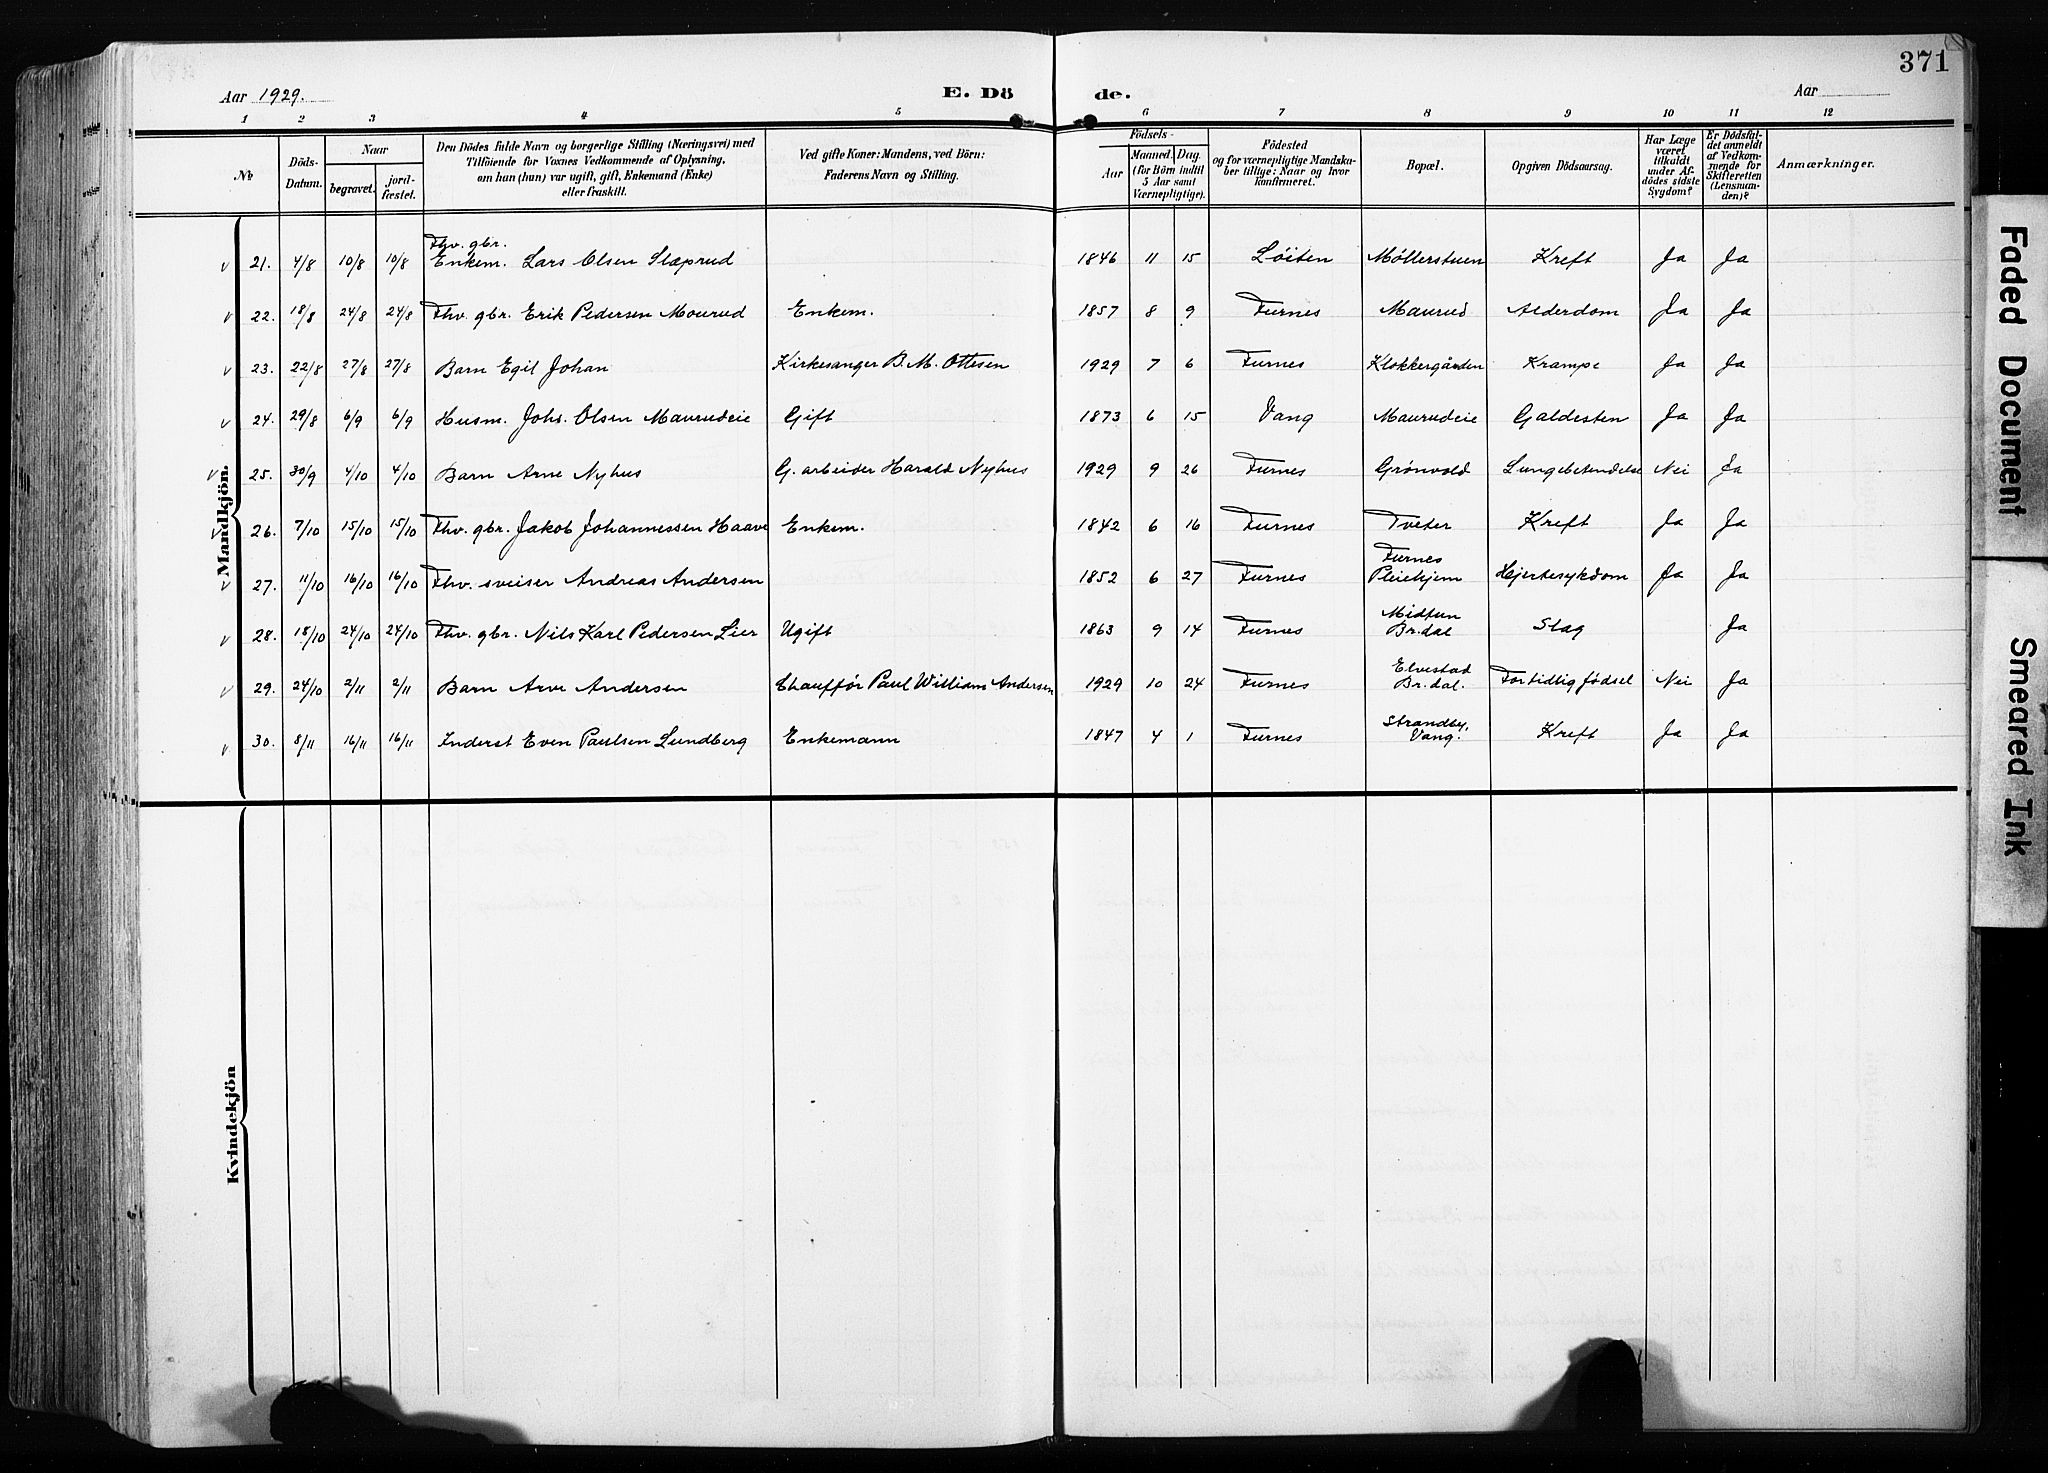 371
Aar 1929.
E. Dö de.
Aar
1 2 3 4 5 6 7 8 9 10 11 12
No
Döds-Datum.
Naar
begravet.
jord-fæstet.
Den Dödes fulde Navn og borgerlige Stilling (Næringsvei) med
Tilföiende for Voxnes Vedkommende af Oplysning,
om han (hun) var ugift, gift, Enkemand (Enke)
eller fraskilt.
Ved gifte Koner: Mandens, ved Börn:
Faderens Navn og Stilling.
Födsels-
Aar
Maaned. Dag.
(for Börn indtil
5 Aar samt
Værnepligtige).
Födested
og for værnepligtige Mandska-
ber tillige: Naar og hvor
konfirmeret.
Bopæl.
Opgiven Dödsaarsag.
Har Læge
været
tilkaldt
under Af-
dödes sidste
Sygdom?
Er Dödsfal-
det anmeldt
af Vedkom-
mende for
Skifteretten
(Lensman-
den)?
Anmærkninger.
Mandkjön.
Thv. gbr.
v 21. 4/8 10/8 10/8 Enkem. Lars Olsen Slæprud 1846 11 15 Löiten Möllerstuen Kreft Ja Ja
v 22. 18/8 24/8 24/8 Fhv. gbr. Erik Pedersen Mourud Enkem. 1857 8 9 Furnes Maurud Alderdom Ja Ja
v 23. 22/8 27/8 27/8 Barn Egil Johan Kirkesanger B. M. Ottesen 1929 7 6 Furnes Klokkergården Krampe Ja Ja
v 24. 29/8 6/9 6/9 Husm. Johs. Olsen Maurudeie Gift 1873 6 15 Vang Maurudeie Galdesten Ja Ja
v 25. 30/9 4/10 4/10 Barn Arne Nyhus G. arbeider Harald Nyhus 1929 9 26 Furnes Grønvold Lungebetendelse Nei Ja
v 26. 7/10 15/10 15/10 Fhv. gbr. Jakob Johannessen Haave Enkem. 1842 6 16 Furnes Tveter Kreft Ja Ja
v 27. 11/10 16/10 16/10 Fhv. sveiser Andreas Andersen 1852 6 27 Furnes Furnes Pleiehjem Hjertesykdom Ja Ja
v 28. 18/10 24/10 24/10 Fhv. gbr. Nils Karl Pedersen Lier Ugift 1863 9 14 Furnes Midtun Br.dal Slag Ja
v 29. 24/10 2/11 2/11 Barn Arve Andersen Chauffør Paul William Andersen 1929 10 24 Furnes Elvestad Br.dal. For tidlig fødsel Nei Ja
v 30. 8/11 16/11 16/11 Inderst Even Paulsen Lundberg Enkemann 1847 4 1 Furnes Strandby, Vang. Kreft Ja Ja
Kvindekjön
Faded Document
Smeared Ink